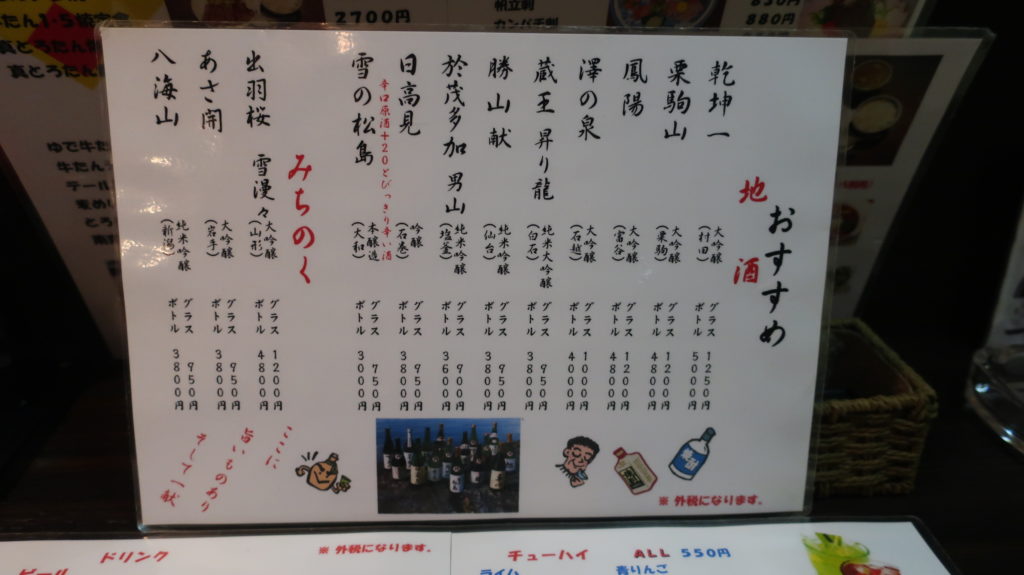 おすすめ
地酒
乾坤一
大吟醸
(村田)
グラス 1250円
ボトル 5000円
栗駒山
大吟醸
(栗駒)
グラス 1200円
ボトル 4800円
鳳陽
大吟醸
(富谷)
グラス 1200円
ボトル 4800円
澤の泉
大吟醸
(石越)
グラス 1000円
ボトル 4000円
蔵王 昇り龍
純米大吟醸
(白石)
グラス 950円
ボトル 3800円
勝山 献
純米吟醸
(仙台)
グラス 950円
ボトル 3800円
於茂多加 男山
純米吟醸
(塩釜)
グラス 900円
ボトル 3600円
日高見
吟醸
(石巻)
グラス 950円
ボトル 3800円
辛口原酒+20とびっきり辛い酒
雪の松島
本醸造
(大和)
グラス 750円
ボトル 3000円
みちのく
出羽桜 雪漫々
大吟醸
(山形)
グラス 1200円
ボトル 4800円
あさ開
大吟醸
(岩手)
グラス 950円
ボトル 3800円
八海山
純米吟醸
(新潟)
グラス 950円
ボトル 3800円
ここに
旨いものあり
※ 外税になります。
2700円
帆立刺
カンパチ刺
850円
880円
ドリンク
※ 外税になります。
ビール
チューハイ ALL 550円
ライム
青りんご